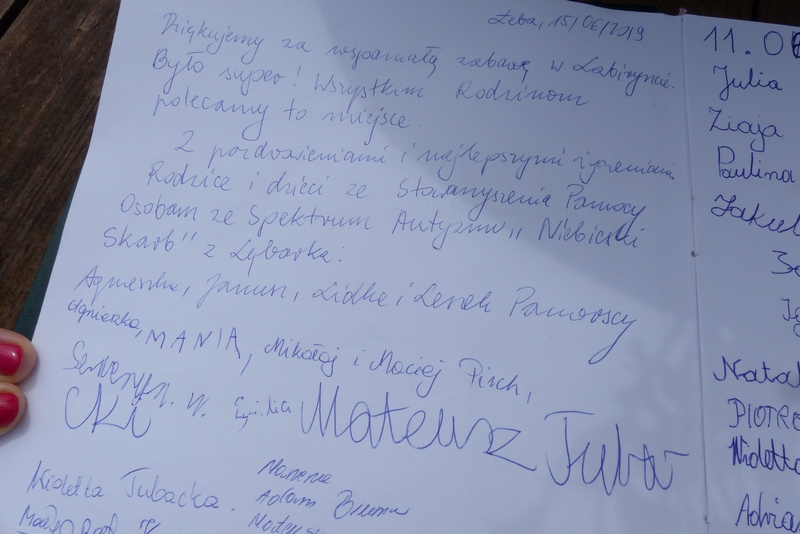 Łeba, 15/06/2019
Dziękujemy za wspaniałą zabawę w Labiryncie.
Było super! Wszystkim Rodzinom
polecamy to miejsce.
Z pozdrowieniami i najlepszymi życzeniami
Rodzice i dzieci ze Stowarzyszenia Pomocy
Osobom ze Spektrum Autyzmu „Niebieski
Skarb" z Lęborka:
Agnieszka, Janusz, Lidka i Leszek Pomorscy
Agnieszka, MANIA, Mikołaj i Maciej Pirch,
Seweryn. W. Emilia Mateusz Tuba
cki
Wioletta Tubacka.
Adam
11.0
Julia
Ziaja
Paulina
Jakub
Natal
PIOTR
Wioletta
Adria